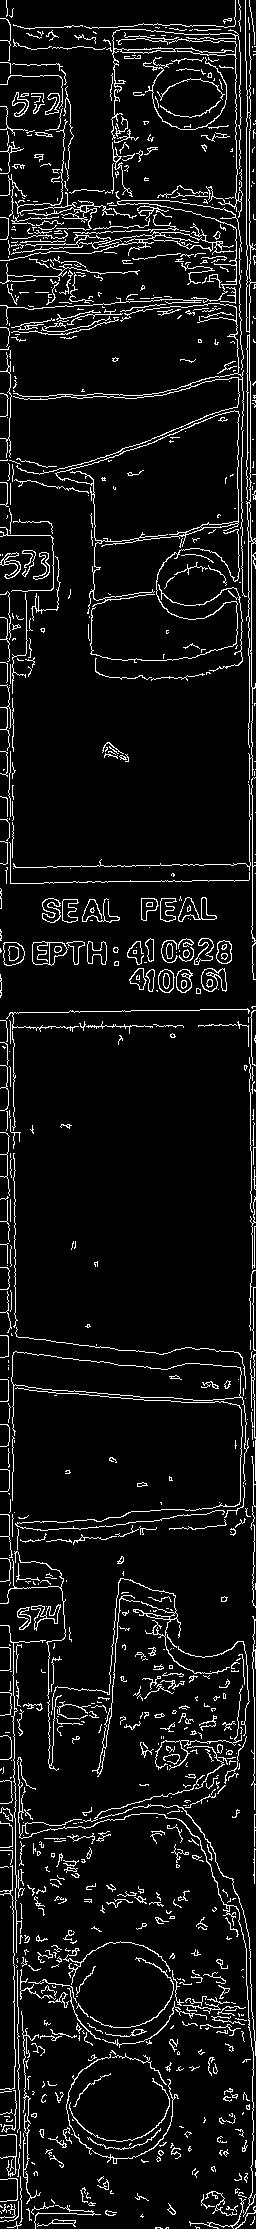 572
573
SEAL PEAL
DEPTH: 4106.28
4106.61
574